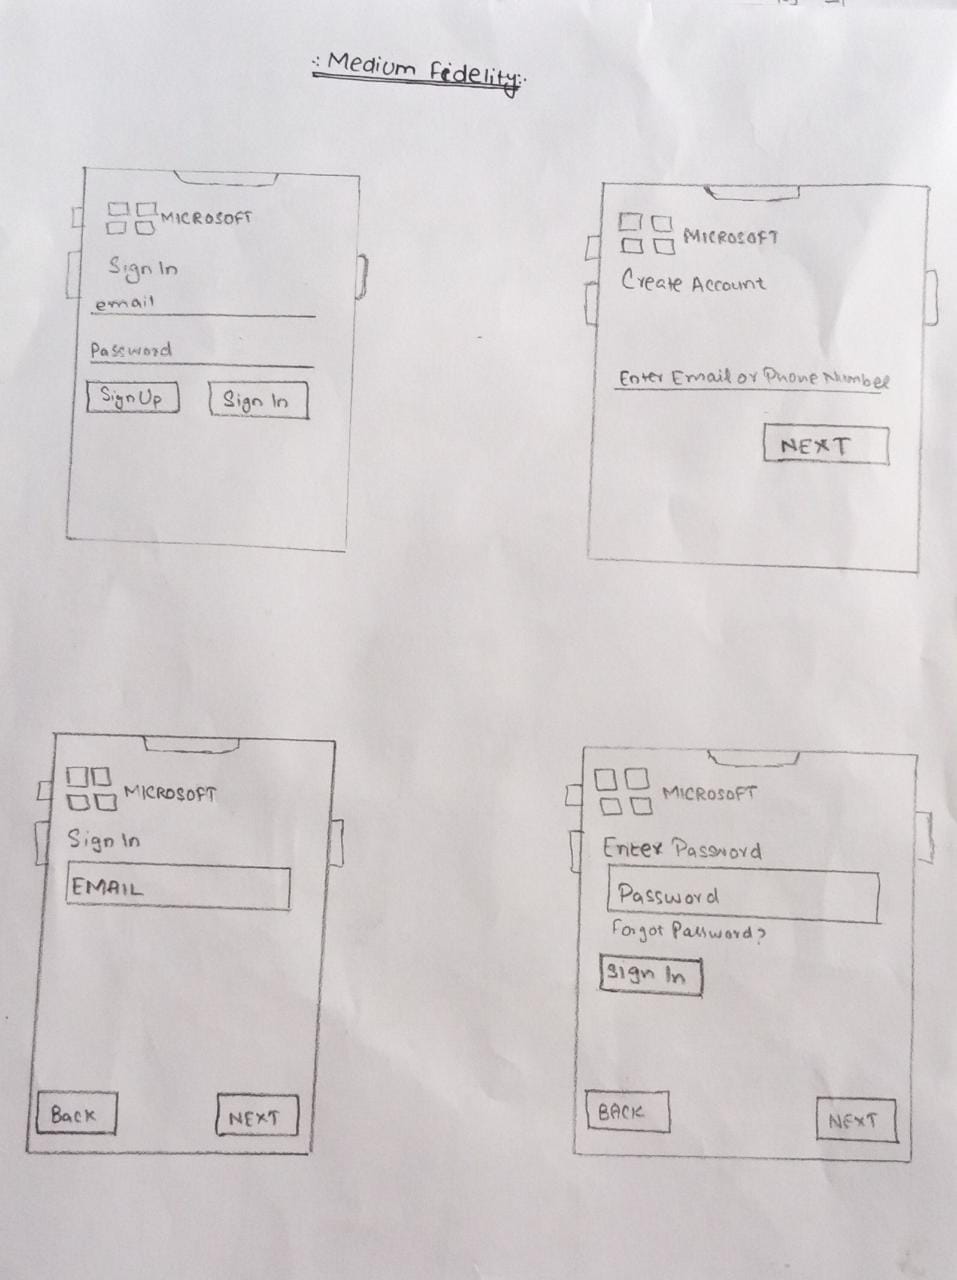 .: Medium Fidelity:.
MICROSOFT
Sign In
email
Password
Sign Up
Sign In
MICROSOFT
Create Account
Enter Email or Phone Number
NEXT
MICROSOFT
Sign In
EMAIL
Back
NEXT
MICROSOFT
Enter Password
Password
Forgot Password?
Sign In
BACK
NEXT